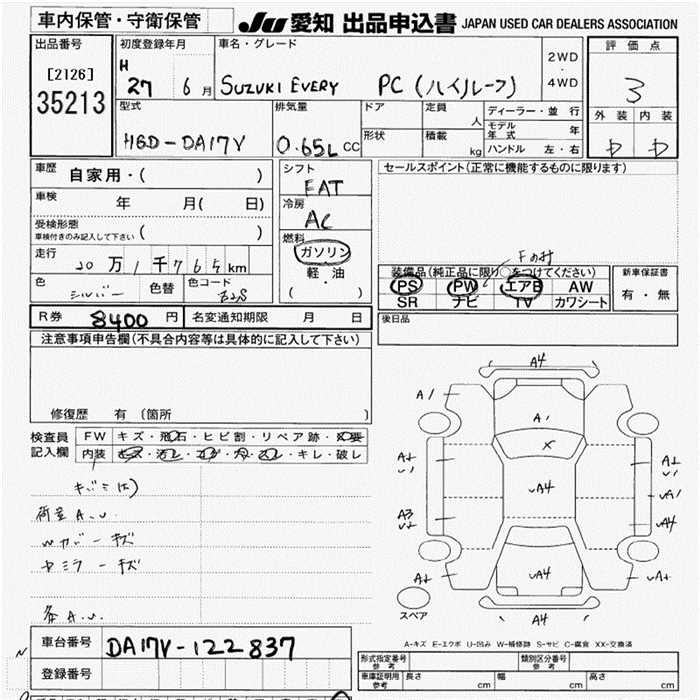 車内保管・守衛保管
JU 愛知 出品申込書 JAPAN USED CAR DEALERS ASSOCIATION
出品番号
[2126]
35213
初度登録年月
H
27 6 月
車名・グレード
SUZUKI EVERY PC (ハイルーフ)
2WD
・
4WD
評価点
3
外装 内装
中 中
型式
HBD-DA17V
排気量
0.65L CC
ドア
形状
定員
人
積載
kg
ディーラー・並行
モデル年式 年
ハンドル 左・右
車歴
自家用・( )
車検
年 月( 日)
受検形態
車検付きのみ記入して下さい ( )
走行
20 万 1 千 7 6 5 km
色
シルバー
色替
色コード
Z2S
シフト
FAT
冷房
AC
燃料
ガソリン
軽・油
( )
セールスポイント(正常に機能するものに限ります)
Fのみ
装備品(純正品に限り○をつけてください)
PS PW エアB AW
SR ナビ TV カワシート
新車保証書
有・無
R券 8400 円
名変通知期限 月 日
後日品
注意事項申告欄(不具合内容等は具体的に記入して下さい)
修復歴 有 (箇所 )
検査員
記入欄
FW キズ・飛石・ヒビ割・リペア跡・X要
内装 キズ・汚レ・コゲ・穴・スレ・キレ・破レ
荷室 A.U.
Wカバーキズ
A4
A1
A1
X
A2
U1
A2
U1
UA4
UA1
A3
U2
UA4
A2
UA4
UA2
A4
スペア
A-キズ E-エクボ U-凹み W-補修跡 S-サビ C-腐食 XX-交換済
車台番号 DA17V-122837
登録番号
形式指定番号
参考
類別区分番号
参考
車庫証明用
参考
長さ cm 幅 cm 高さ cm